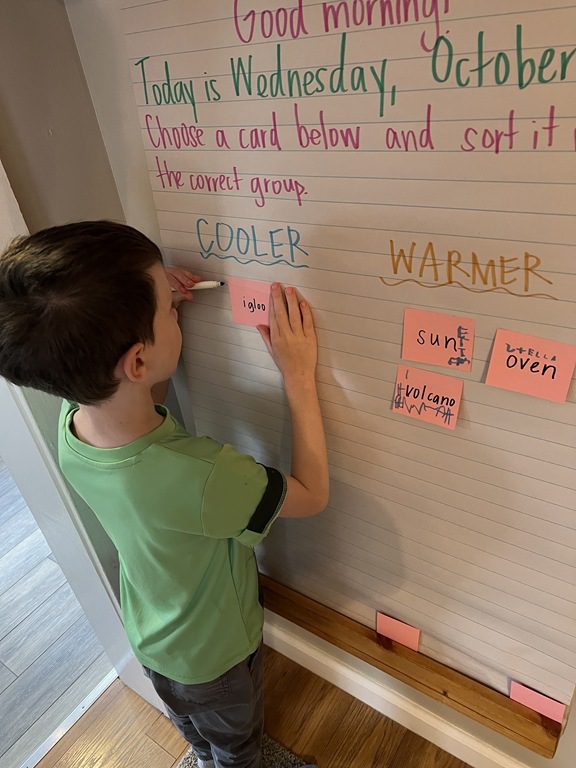 Good morning!
Today is Wednesday, October
Choose a card below and sort it
the correct group.
COOLER
WARMER
igloo
sun
STELLA
oven
volcano